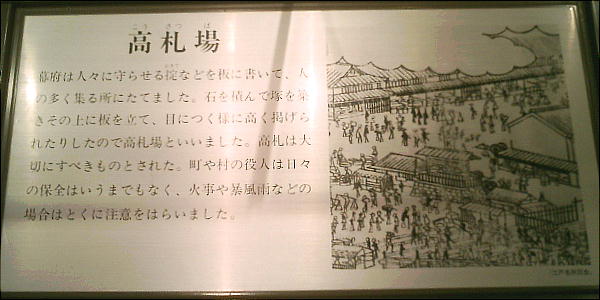 こう さつ ば
高札場
幕府は人々に守らせる掟などを板に書いて、人
おきて
の多く集る所にたてました。石を積んで塚を築
きその上に板を立て、目につく様に高く掲げら
れたりしたので高札場といいました。高札は大
切にすべきものとされた。町や村の役人は日々
の保全はいうまでもなく、火事や暴風雨などの
場合はとくに注意をはらいました。
「江戸名所図会」